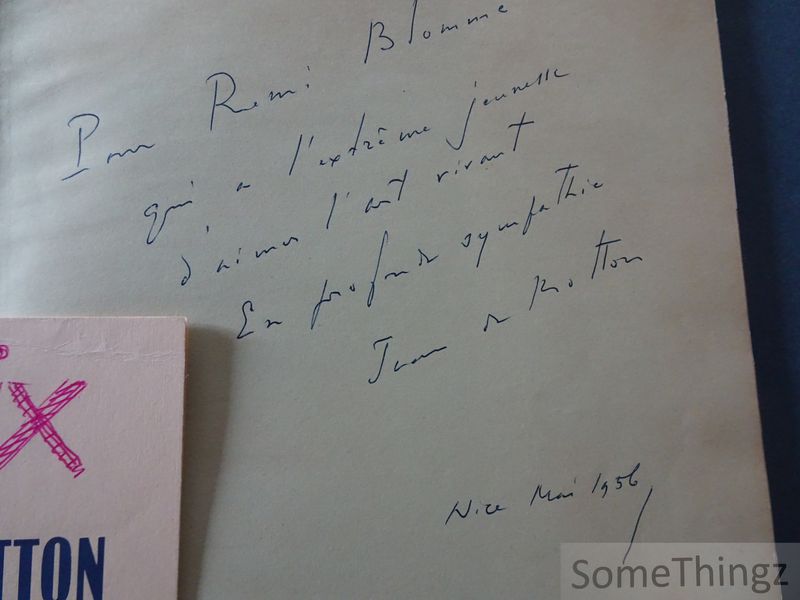 Pour Remi Blomme
qui a l'extrême jeunesse
d'aimer l'art vivant
En profonde sympathie
Jean de Botton
Nice Mai 1956
IX
TTON
SomeThingz